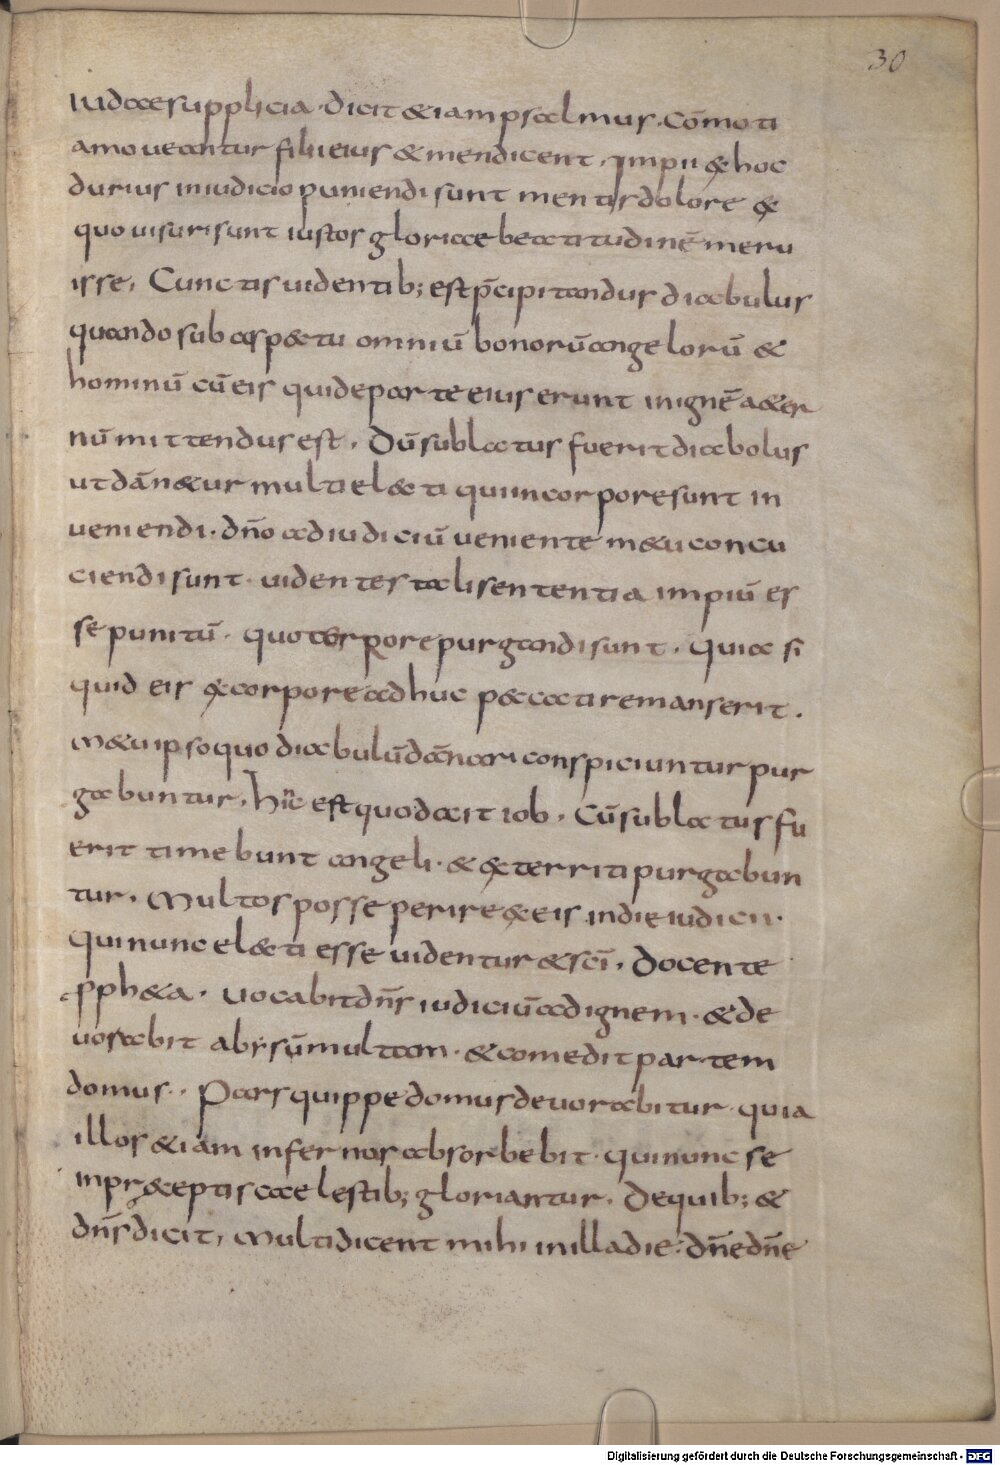 30
iudaee supplicia. dicit &iam psalmus. Cōmoti
amoueantur filii eius & mendicent. Impii & hoc
durius in iudicio puniendi sunt mentis dolore &
quo uisuri sunt iustos gloriae beatitudinē meru
isse, Cunctis uidentib; est p̄cipitandus diabulus
quando sub asp&tu omniū bonorū angelorū &
hominū cū eis qui de parte eius erunt in ignē a&er
nū mittendus est. Dū sublatus fuerit diabolus
ut dān&ur multi el&ti qui in corpore sunt in
ueniendi. dn̄o ad iudiciū ueniente m&u concu
ciendi sunt. uidentes tali sententia impiū es
se punitū. quo terrore purgandi sunt. Quia si
quid eis & corpore adhuc p&cati remanserit.
m&u ipso quo diabulū dānari conspiciuntur pur
gabuntur. Hīc est quod ait iob. Cū sublatus fu
erit timebunt angeli. & &territi purgabun
tur. Multos posse perire & eis in die iudicii.
Qui nunc el&ti esse uidentur & sc̄i. Docente
pph&a. Uocabit dn̄s iudiciū ad ignem. & de
uorabit abissū multam. & comedit partem
domus.. Pars quippe domus deuorabitur. quia
illos &iam infernus absorbebit. qui nunc se
in pr&eptis caelestib; gloriantur. De quib; &
dn̄s dicit, Multi dicent mihi in illa die: dn̄e dn̄e
Digitalisierung gefördert durch die Deutsche Forschungsgemeinschaft - DFG